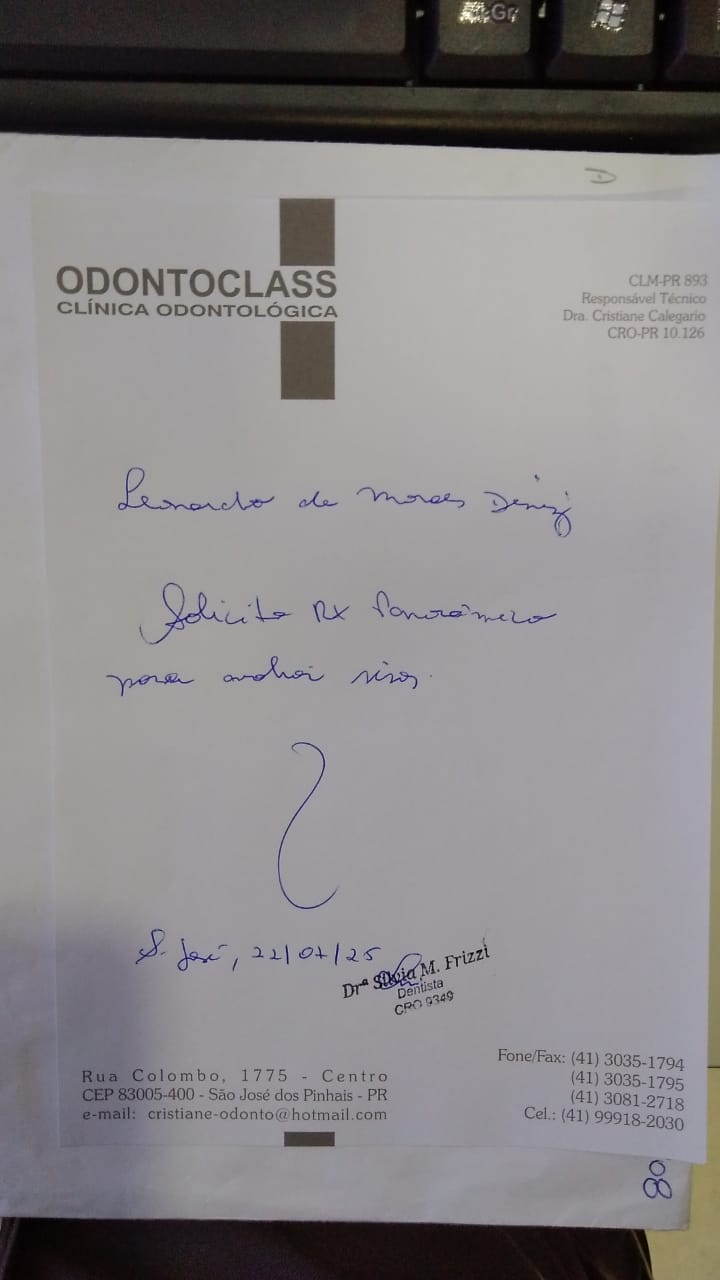 Gr
D
ODONTOCLASS
CLÍNICA ODONTOLÓGICA
CLM-PR 893
Responsável Técnico
Dra. Cristiane Calegario
CRO-PR 10.126
Leonardo de Moraes
Solicito RX Panorâmico
para sisos.
S. José, 22/07/25
Drª Silvia M. Frizzi
Dentista
CRO 9349
Rua Colombo, 1775 - Centro
CEP 83005-400 - São José dos Pinhais - PR
e-mail: cristiane-odonto@hotmail.com
Fone/Fax: (41) 3035-1794
(41) 3035-1795
(41) 3081-2718
Cel.: (41) 99918-2030